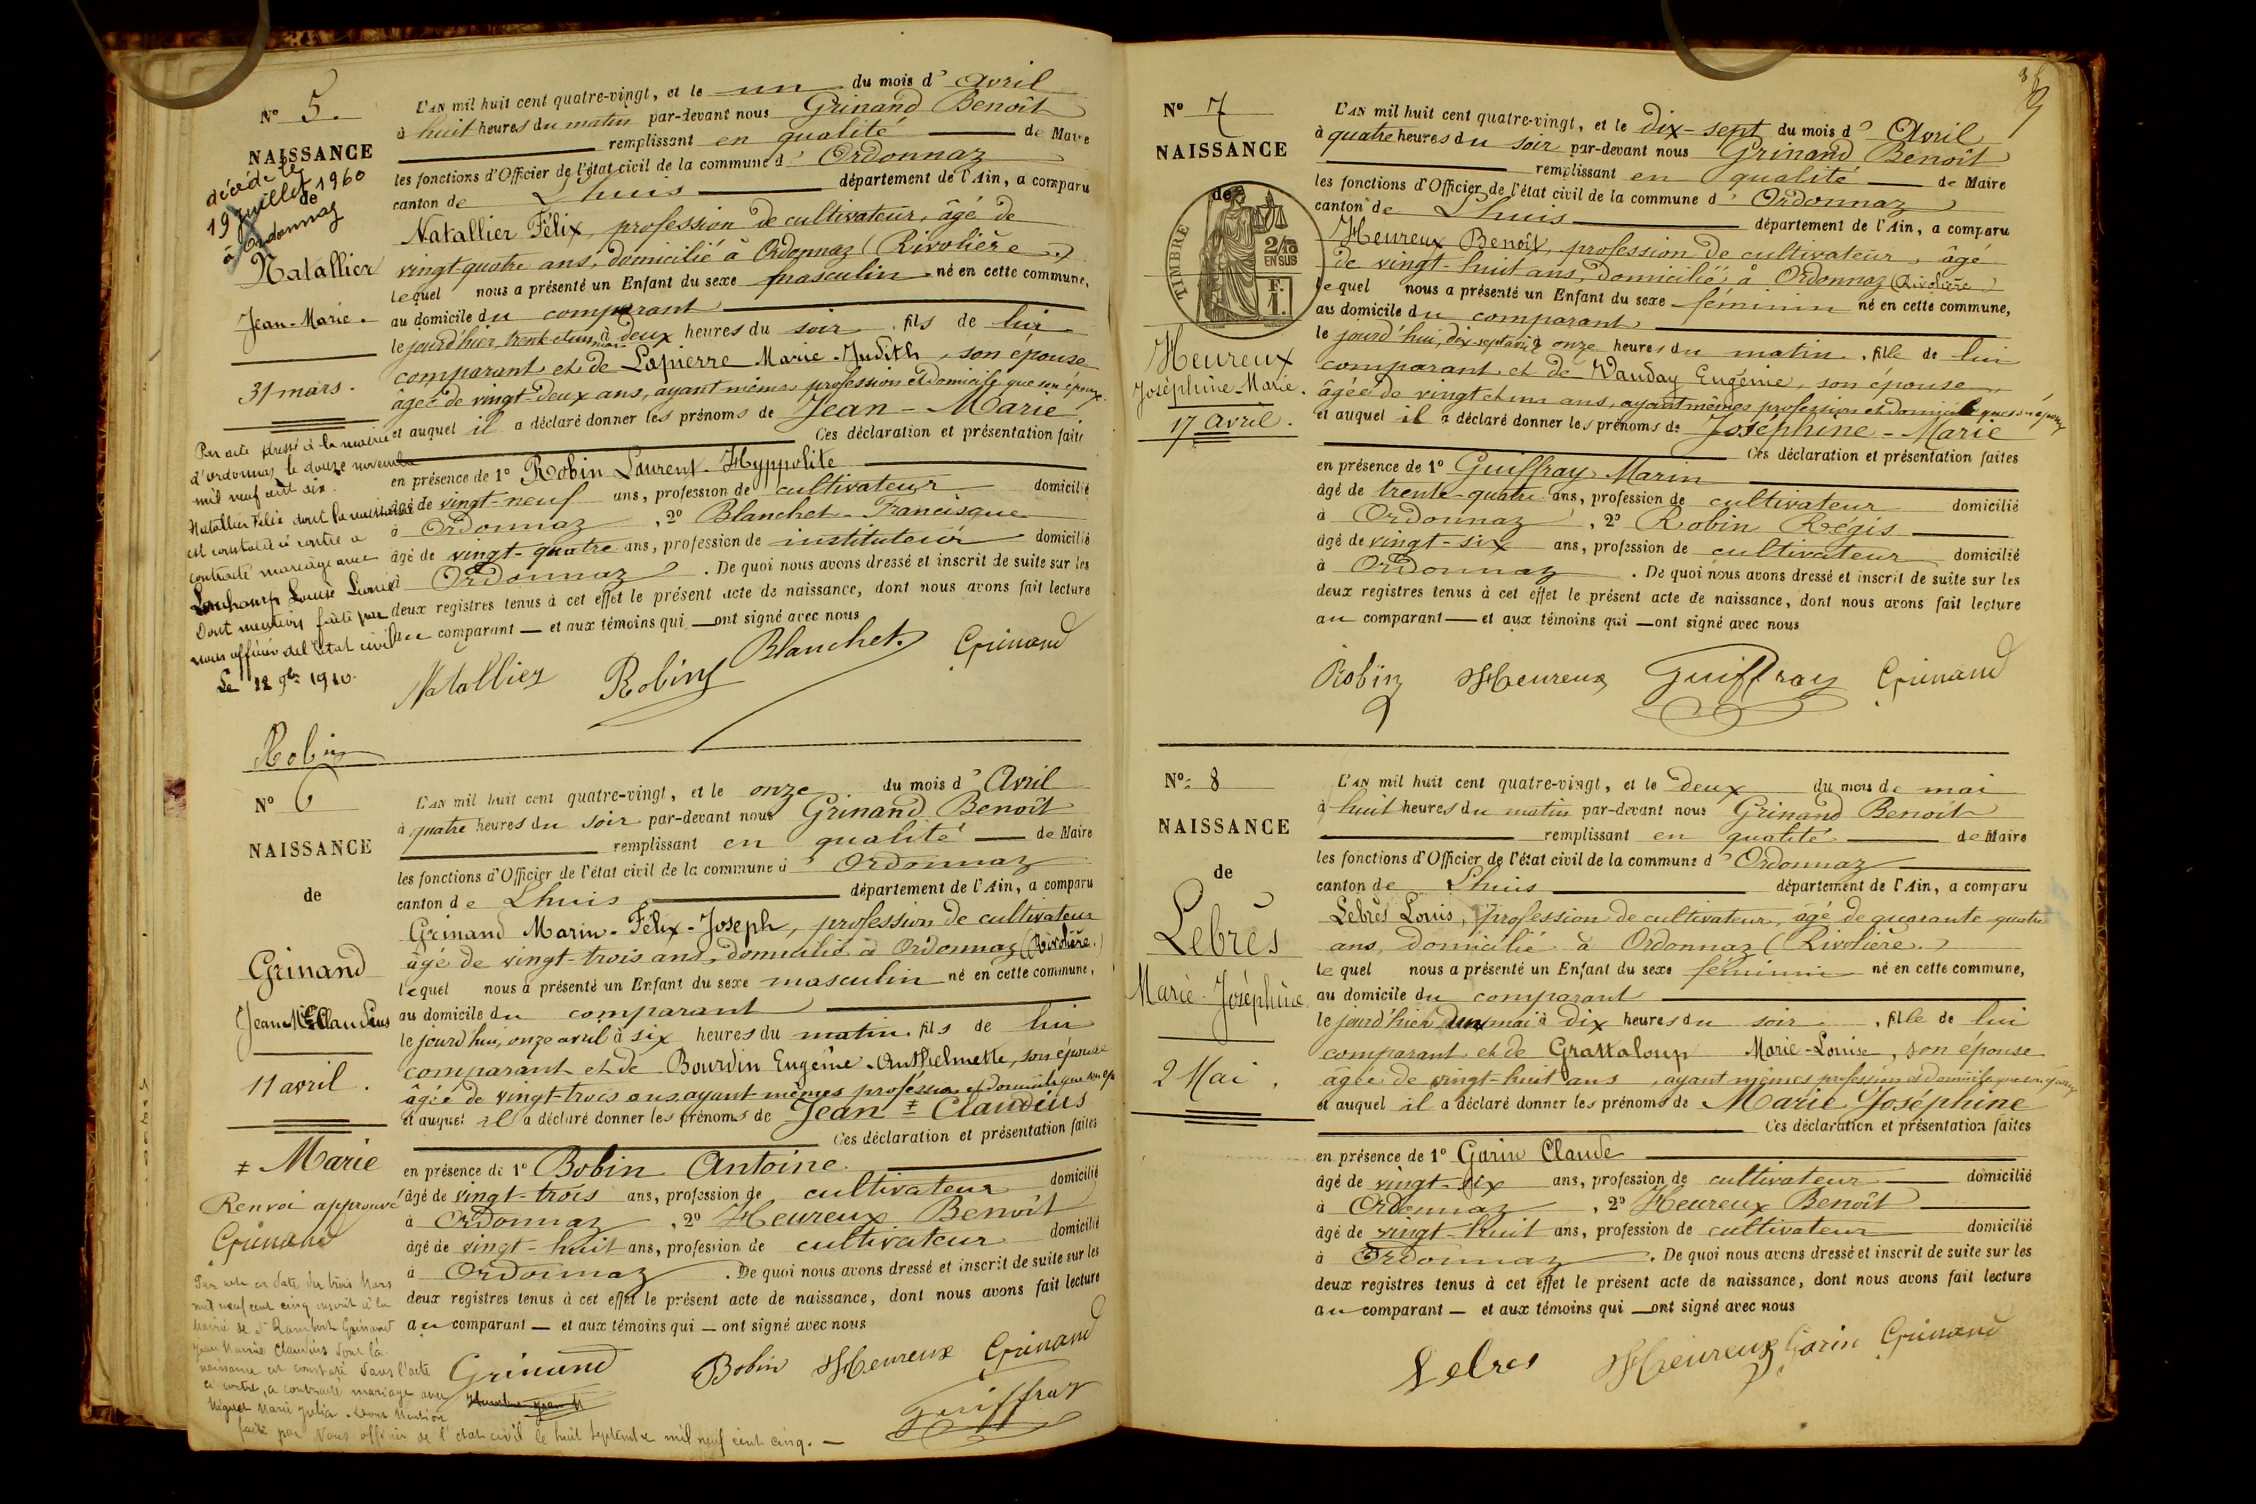 N° 5.
NAISSANCE
décédé le
19 juillet 1960
de
à Ordonnaz
Natallier
Jean-Marie.
31 mars.
Par acte dressé à la mairie
d'ordonnaz le douze novembre
mil neuf cent dix
Natallier Félix dont la naissance
est constatée ci contre a
contracté mariage avec
Louise
Dont mention faite par
nous officier de l'état civil
Le 12 9bre 1910.
Robin
L'AN mil huit cent quatre-vingt, et le un du mois d' Avril
à huit heures du matin par-devant nous Grinand Benoît
remplissant en qualité de Maire
les fonctions d'Officier de l'état civil de la commune d' Ordonnaz
canton de Lhuis département de l'Ain, a comparu
Natallier Félix, profession de cultivateur, âgé de
vingt quatre ans, domicilié à Ordonnaz (Rivolière.)
lequel nous a présenté un Enfant du sexe masculin né en cette commune,
au domicile du comparant
le jourd'hier, trente et un mars à deux heures du soir, fils de lui
comparant et de Lapierre Marie-Judith, son épouse
âgée de vingt-deux ans, ayant mêmes profession et domicile que son époux.
et auquel il a déclaré donner les prénoms de Jean-Marie
Ces déclaration et présentation faites
en présence de 1° Robin Laurent-Hyppolite
âgé de vingt-neuf ans, profession de cultivateur domicilié
à Ordonnaz, 2° Blanchet-Francisque
âgé de vingt-quatre ans, profession de instituteur domicilié
à Ordonnaz. De quoi nous avons dressé et inscrit de suite sur les
deux registres tenus à cet effet le présent acte de naissance, dont nous avons fait lecture
au comparant — et aux témoins qui — ont signé avec nous
Natallier Robin Blanchet. Grinand
N° 6
NAISSANCE
de
Grinand
Jean Mie Claudius
11 avril.
‡ Marie
Renvoi approuvé
Grinand
Par acte en date du trois Mars
mil neuf cent cinq inscrit à la
Mairie de St Rambert Grinand
Jean Marie Claudius dont la
naissance est constaté dans l'acte
ci contre, a contracté mariage avec
Marie Julia. Dont Mention
faite par Nous officier de l'état civil le huit Septembre mil neuf cent cinq. —
L'AN mil huit cent quatre-vingt, et le onze du mois d' Avril
à quatre heures du soir par-devant nous Grinand Benoît
remplissant en qualité — de Maire
les fonctions d'Officier de l'état civil de la commune d' Ordonnaz
canton de Lhuis département de l'Ain, a comparu
Grinand Marin-Félix-Joseph, profession de cultivateur
âgé de vingt-trois ans, domicilié à Ordonnaz (Rivolière.)
lequel nous a présenté un Enfant du sexe masculin né en cette commune,
au domicile du comparant
le jourd'hui, onze avril à six heures du matin fils de lui
comparant et de Bourdin Eugénie-Anthelmette, son épouse
âgée de vingt-trois ans, ayant mêmes profession et domicile que son ép
et auquel il a déclaré donner les prénoms de Jean ‡ Claudius
Ces déclaration et présentation faites
en présence de 1° Bobin Antoine
âgé de vingt-trois ans, profession de cultivateur domicilié
à Ordonnaz, 2° Heureux Benoît
âgé de vingt-huit ans, profession de cultivateur domicilié
à Ordonnaz. De quoi nous avons dressé et inscrit de suite sur les
deux registres tenus à cet effet le présent acte de naissance, dont nous avons fait lecture
au comparant — et aux témoins qui — ont signé avec nous
Grinand Bobin Heureux Grinand
Guiffray
9
N° 7
NAISSANCE
de
TIMBRE
2/10
EN SUS
F.
1.
Heureux
Joséphine-Marie.
17 avril.
L'AN mil huit cent quatre-vingt, et le dix-sept du mois d' Avril
à quatre heures du soir par-devant nous Grinand Benoît
remplissant en qualité — de Maire
les fonctions d'Officier de l'état civil de la commune d' Ordonnaz
canton de Lhuis département de l'Ain, a comparu
Heureux Benoît, profession de cultivateur, âgé
de vingt-huit ans, domicilié à Ordonnaz (Rivolière)
lequel nous a présenté un Enfant du sexe féminin né en cette commune,
au domicile du comparant
le jourd'hui, dix-sept avril à onze heures du matin, fille de lui
comparant et de Vauday Eugénie, son épouse
âgée de vingt et un ans, ayant mêmes profession et domicile que son époux
et auquel il a déclaré donner les prénoms de Joséphine-Marie
Ces déclaration et présentation faites
en présence de 1° Guiffray Marin
âgé de trente-quatre ans, profession de cultivateur domicilié
à Ordonnaz, 2° Robin Régis
âgé de vingt-six ans, profession de cultivateur domicilié
à Ordonnaz. De quoi nous avons dressé et inscrit de suite sur les
deux registres tenus à cet effet le présent acte de naissance, dont nous avons fait lecture
au comparant — et aux témoins qui — ont signé avec nous
Robin Heureux Guiffray Grinand
N° 8
NAISSANCE
de
Lebrès
Marie-Joséphine
2 Mai.
L'AN mil huit cent quatre-vingt, et le deux du mois de mai
à huit heures du matin par-devant nous Grinand Benoît
remplissant en qualité de Maire
les fonctions d'Officier de l'état civil de la commune d' Ordonnaz
canton de Lhuis département de l'Ain, a comparu
Lebrès Louis, profession de cultivateur, âgé de quarante-quatre
ans, domicilié à Ordonnaz (Rivolière.)
lequel nous a présenté un Enfant du sexe féminin né en cette commune,
au domicile du comparant
le jourd'hier, mai à dix heures du soir, fille de lui
comparant et de Grattaloup Marie-Louise, son épouse
âgée de vingt-huit ans, ayant mêmes profession et domicile que son époux
et auquel il a déclaré donner les prénoms de Marie Joséphine
Ces déclaration et présentation faites
en présence de 1° Garin Claude
âgé de vingt-six ans, profession de cultivateur domicilié
à Ordonnaz, 2° Heureux Benoît
âgé de vingt-huit ans, profession de cultivateur domicilié
à Ordonnaz. De quoi nous avons dressé et inscrit de suite sur les
deux registres tenus à cet effet le présent acte de naissance, dont nous avons fait lecture
au comparant — et aux témoins qui — ont signé avec nous
Lebres Heureux Garin Grinand